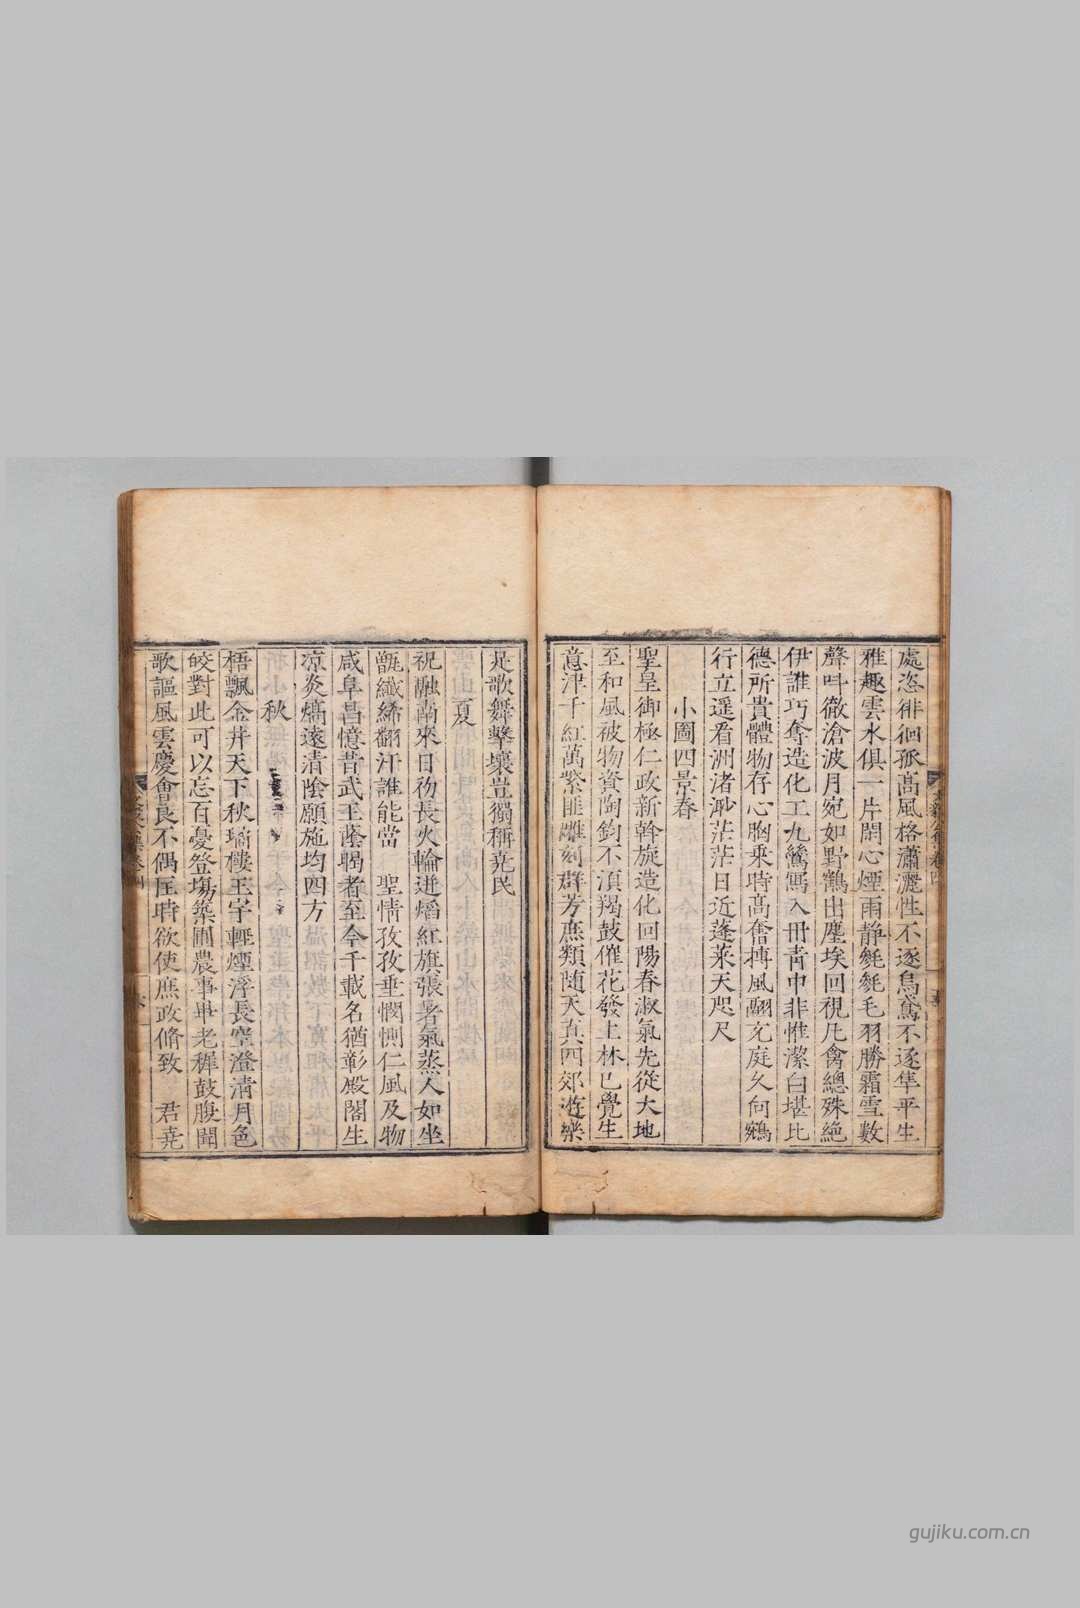 處恣徘徊孤髙風格瀟灑性不逐鳥鳶不逐隼平生
雅趣雲水俱一片閒心煙雨静毿毿毛羽勝霜雪數
聲呌徹滄波月宛如野鶴出塵埃回視凡禽總殊絶
伊誰巧奪造化工九鷥寫入冊青中非惟潔白堪比
德所貴體物存心胸乘時髙奮摶風翮充庭久向鵷
行立遥看洲渚渺茫茫日近蓬萊天咫尺
小圖四景春
聖皇御極仁政新斡旋造化回陽春淑氣先從大地
至和風被物資陶鈞不湏羯鼓催花發上林已覺生
意津千紅萬紫匪雕刻群芳庶類随天真四郊遊樂
是歌舞擊壤豈獨稱堯民
夏
祝融南來日礽長火輪迸熖紅旗張暑氣蒸人如坐
甑纖絺翻汗誰能當 聖情孜孜垂憫惻仁風及物
咸阜昌憶昔武王蔭暍者至今千載名猶彰殿閣生
凉炎熇遠清陰願施均四方
秋
梧飄金井天下秋瑤樓玉宇輕煙浮長空澄清月色
皎對此可以忘百憂登塲築圃農事畢老穉鼓腹聞
歌謳風雲慶會良不偶匡時欲使庶政脩致 君堯
gujiku.com.cn